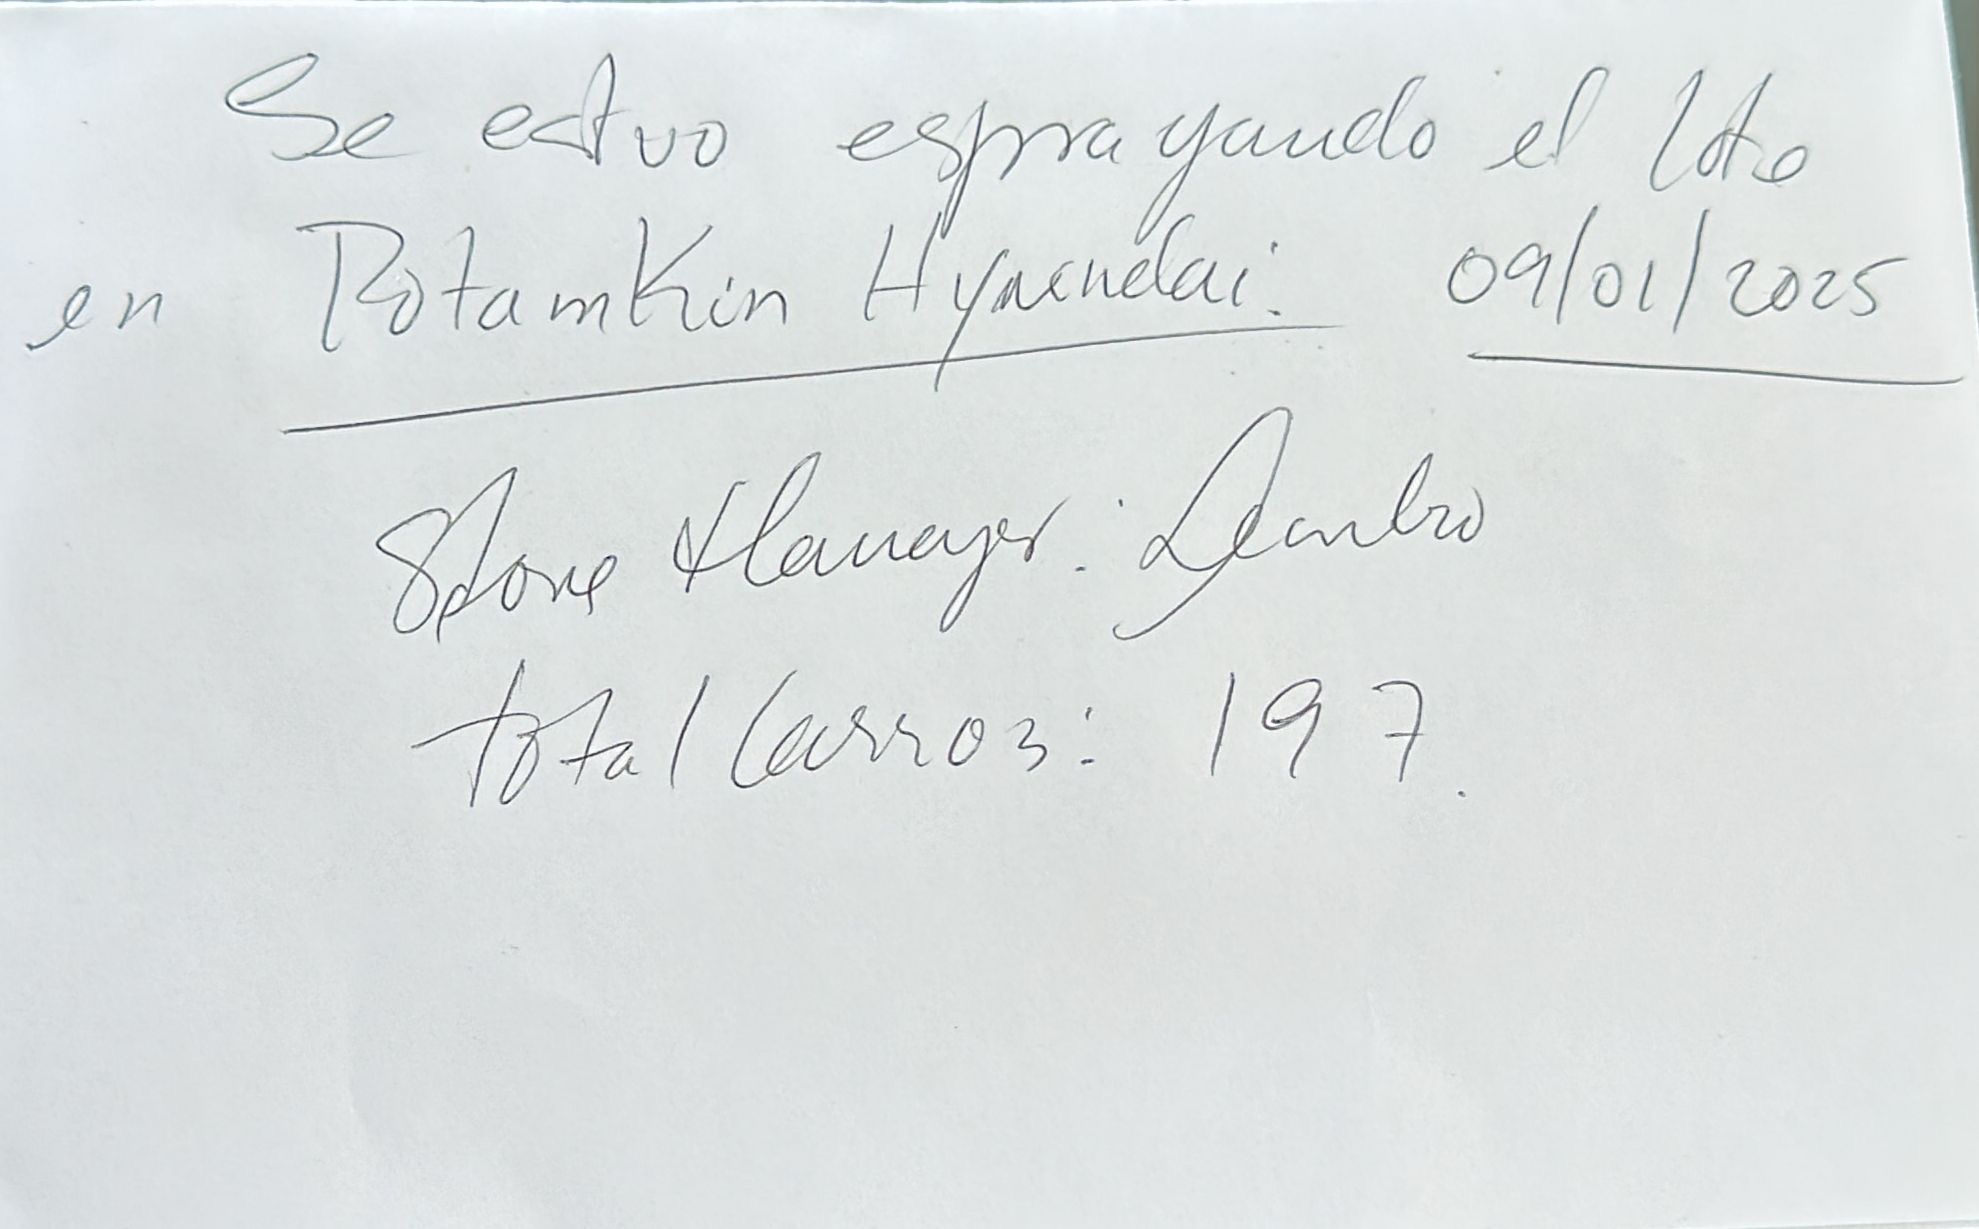 Se estuvo esprayando el lote
en Potamkin Hyundai. 09/01/2025
Store Manager: Leandro
total Carros: 197.